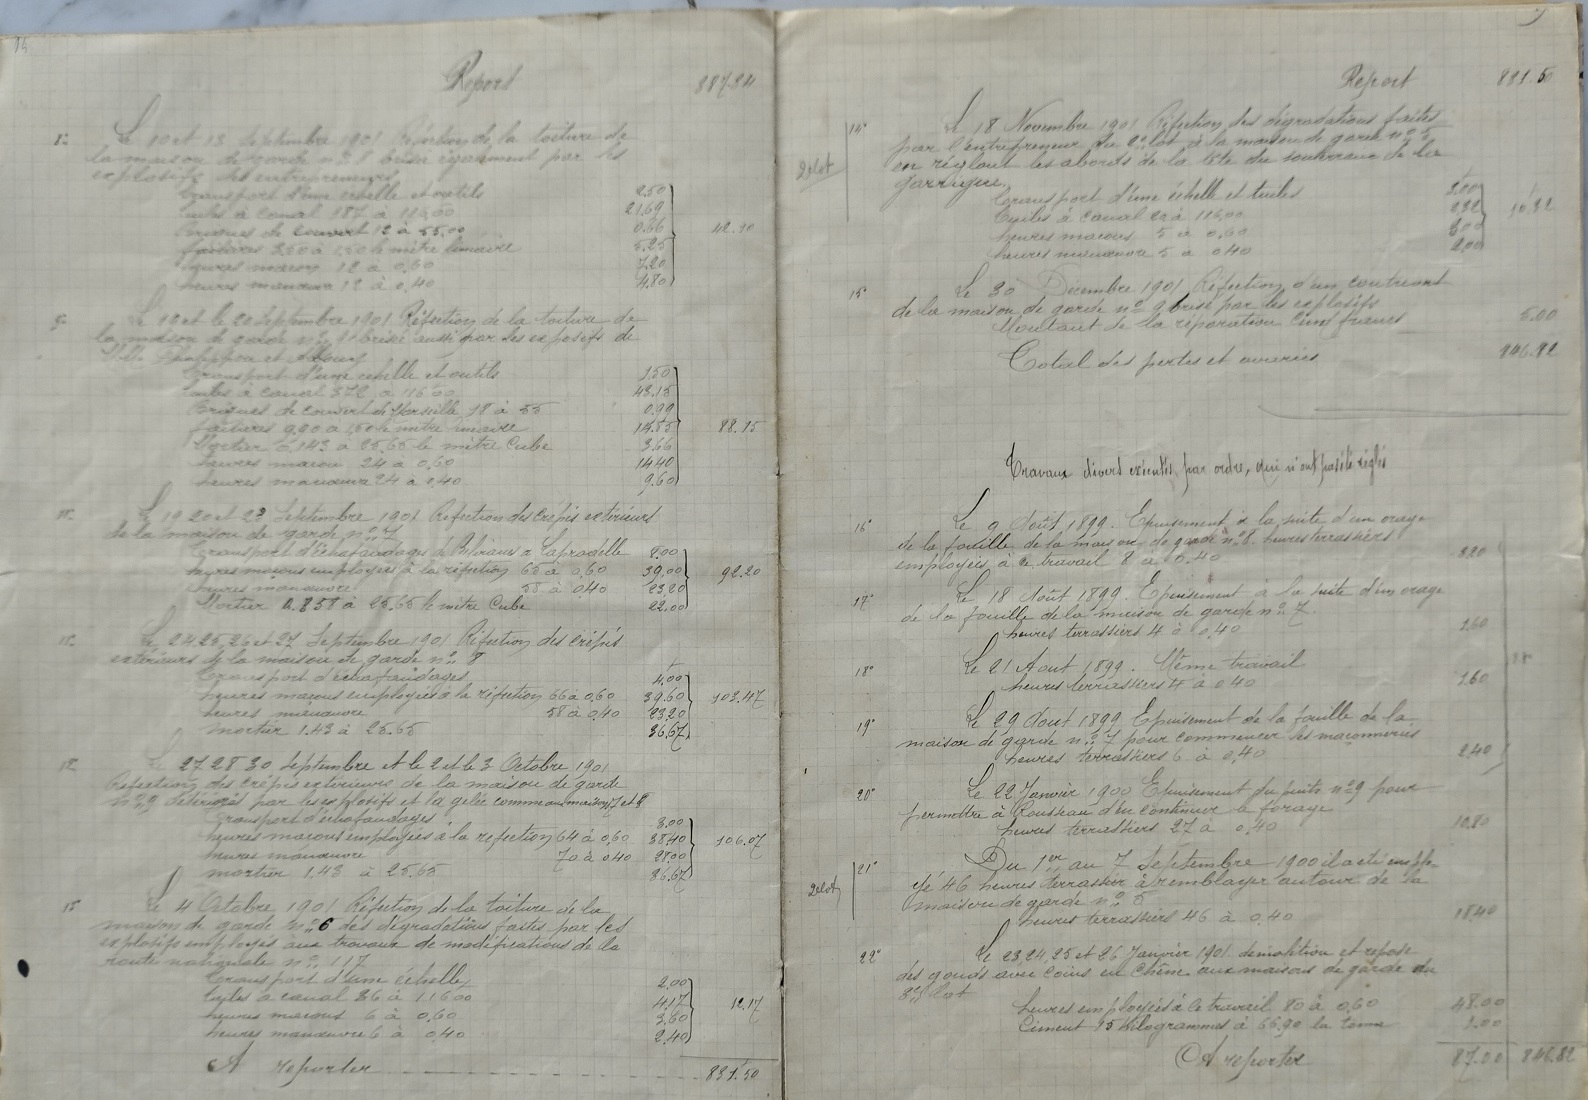 Report
887.84
8° Le 10 et 13 Septembre 1901 Réfection de la toiture de
la maison de garde n° 8 brisée également par les
explosifs des entrepreneurs
Transport d'une échelle et outils 2.50
Tuiles à canal 187 à 116.00 21.69
Briques de couvert 12 à 55.00 0.66 42.10
faîtières 3.50 à 1.50 le mètre linéaire 5.25
heures maçon 12 à 0.60 7.20
heures manœuvre 12 à 0.40 4.80
9° Le 19 et le 20 Septembre 1901 Réfection de la toiture de
la maison de garde n° 9 brisée aussi par les explosifs de
et
Transport d'une échelle et outils 1.50
Tuiles à canal 372 à 116.00 43.15
Briques de couvert de Marseille 18 à 55 0.99
faîtières 9.90 à 1.50 le mètre linéaire 14.85 88.15
Mortier 0.143 à 25.65 le mètre Cube 3.66
heures maçon 24 à 0.60 14.40
heures manœuvre 24 à 0.40 9.60
10° Le 19 20 et 23 Septembre 1901 Réfection des crépis extérieurs
de la maison de garde n° 7
Transport d'échafaudages de à Lapradelle 8.00
heures maçons employées à la réfection 65 à 0.60 39.00 92.20
heures manœuvre 58 à 0.40 23.20
Mortier 0.858 à 25.65 le mètre Cube 22.00
11° Le 24 25, 26 et 27 Septembre 1901 Réfection des crépis
extérieurs de la maison de garde n° 8
Transport d'échafaudages 4.00
heures maçons employées à la réfection 66 à 0.60 39.60 103.47
heures manœuvre 58 à 0.40 23.20
mortier 1.43 à 25.65 36.67
12° Le 27 28 30 Septembre et le 2 et le 3 Octobre 1901
Réfection des crépis extérieurs de la maison de garde
n° 9 détériorés par les explosifs et la gelée comme aux maisons 7 et 8
Transport d'échafaudages 3.00
heures maçons employées à la réfection 64 à 0.60 38.40 106.07
heures manœuvre 70 à 0.40 28.00
mortier 1.43 à 25.65 36.67
13° Le 4 Octobre 1901 Réfection de la toiture de la
maison de garde n° 6 des dégradations faites par les
explosifs employés aux travaux de modifications de la
route nationale n° 117
Transport d'une échelle 2.00
Tuiles à canal 36 à 116.00 4.17 12.17
heures maçons 6 à 0.60 3.60
heures manœuvre 6 à 0.40 2.40
A reporter 831.50
Report 831.50
14° Le 18 Novembre 1901 Réfection des dégradations faites
par l'entrepreneur du 2° lot à la maison de garde n° 5
2° lot
en réglant les abords de la tête du souterrain de la
garrigue.
Transport d'une échelle et tuiles 3.00
Tuiles à canal 20 à 116.00 2.32 10.32
heures maçons 5 à 0.60 3.00
heures manœuvre 5 à 0.40 2.00
15° Le 30 Décembre 1901 Réfection d'un contrevent
de la maison de garde n° 9 brisé par les explosifs
Montant de la réparation Cinq francs 5.00
Total des pertes et avaries 846.82
Travaux divers exécutés par ordre, qui n'ont pas été réglés
16° Le 9 Août 1899. Epuisement à la suite d'un orage
de la fouille de la maison de garde n° 8. heures terrassiers
employées à ce travail 8 à 0.40 3.20
17° Le 18 Août 1899. Epuisement à la suite d'un orage
de la fouille de la maison de garde n° 7.
heures terrassiers 4 à 0.40 1.60
18° Le 21 Aout 1899. Même travail
heures terrassiers 4 à 0.40 1.60
19° Le 29 Aout 1899 Epuisement de la fouille de la
maison de garde n° 7 pour commencer les maçonneries
heures terrassiers 6 à 0.40 2.40
20° Le 22 Janvier 1900 Epuisement du puits n° 9 pour
permettre à Rousseau d'en continuer le forage
heures terrassiers 27 à 0.40 10.80
21° Du 1er au 7 Septembre 1900 il a été emplo-
2° lot
yé 46 heures terrassier à remblayer autour de la
maison de garde n° 5
heures terrassiers 46 à 0.40 18.40
22° Le 23 24, 25 et 26 Janvier 1901 démolition et repose
des gonds avec coins en chêne aux maisons de garde du
3° lot
heures employées à ce travail 80 à 0.60 48.00
Ciment 15 Kilogrammes à 66.90 la Tonne 1.00
A reporter 87.00 846.82